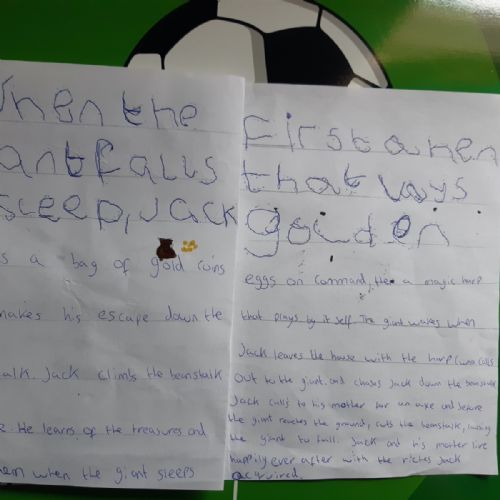 When the
ant falls
sleep, Jack
s a bag of gold coins
makes his escape down the
alk. Jack climbs the beanstalk
e. He learns of the treasures and
hem when the giant sleeps
First a hen
that lays
golden
eggs on command, then a magic harp
that plays by it self. The giant wakes when
Jack leaves the house with the harp (who calls
out to the giant. and chases Jack down the beanstalk
Jack calls to his mother for an axe and before
the giant reaches the ground, cuts the beanstalk, causing
the giant to fall. Jack and his mother live
happily ever after with the riches Jack
acquired.